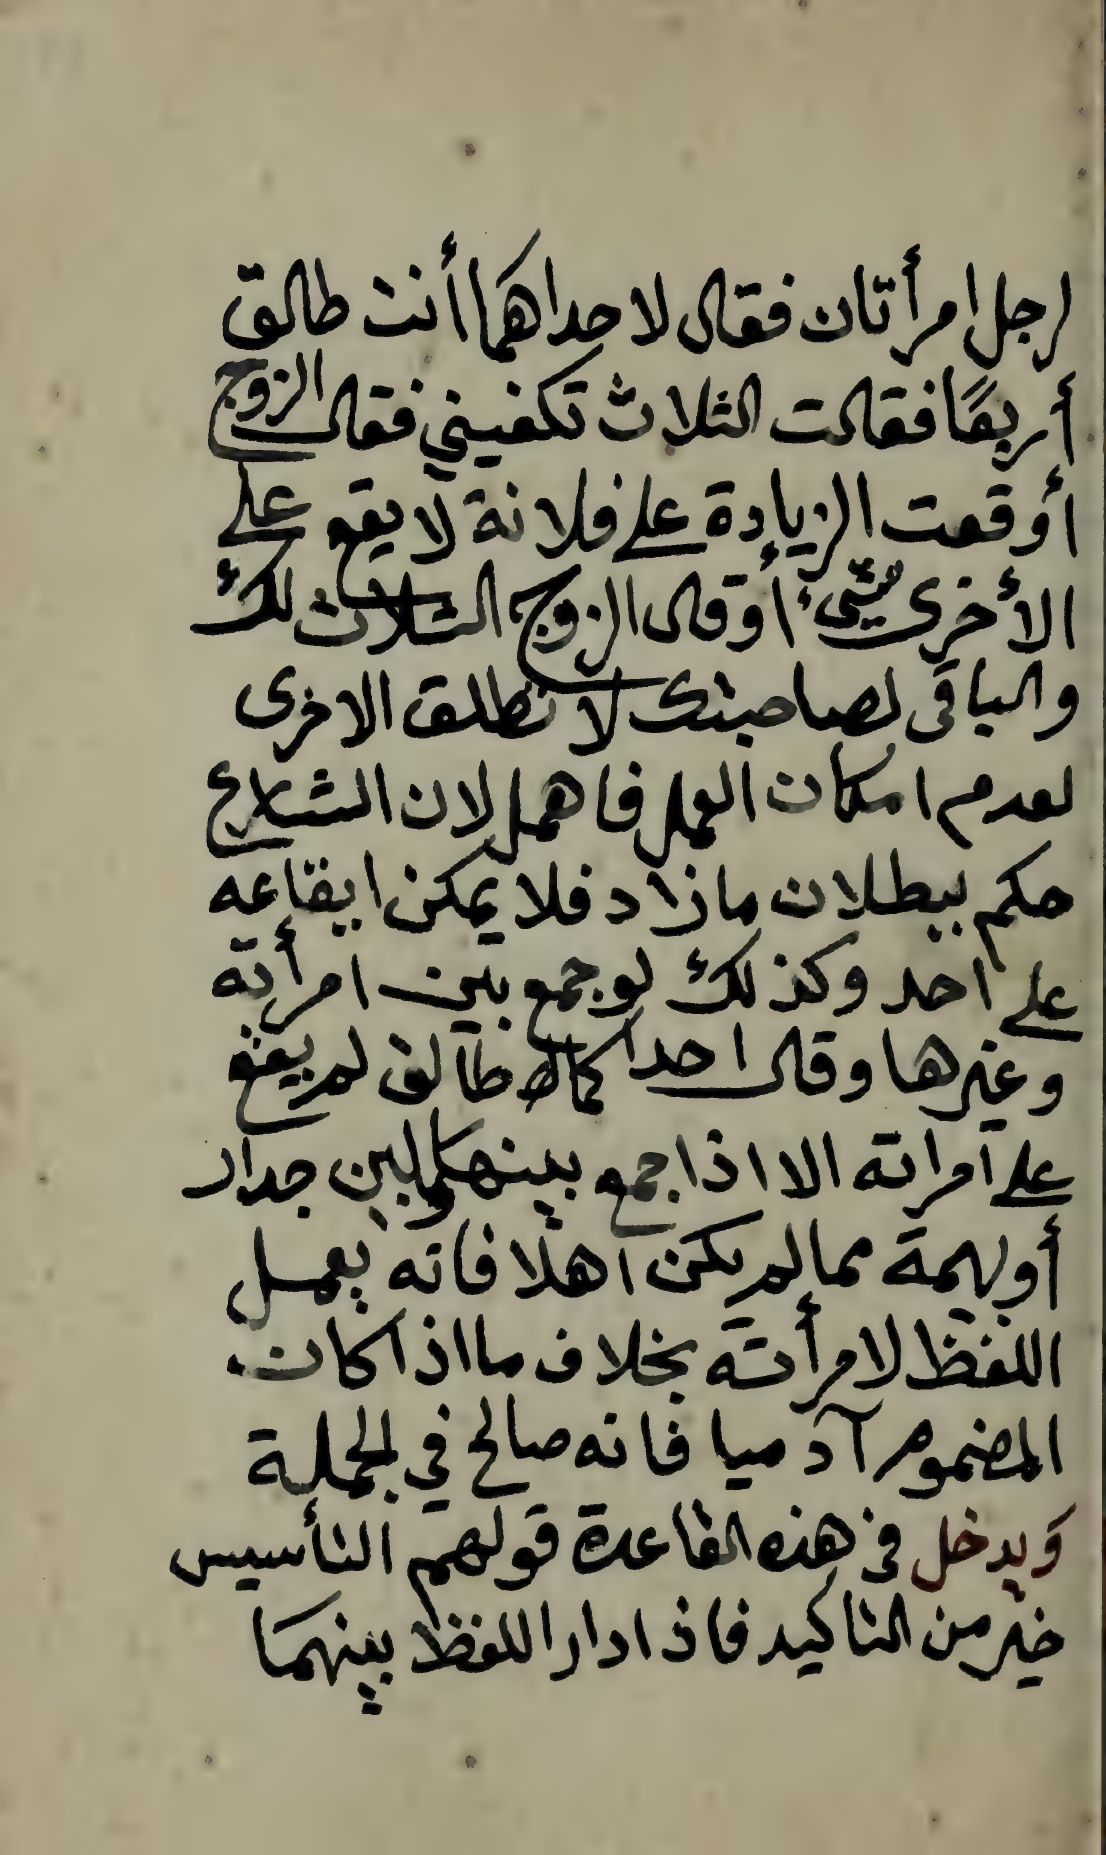 لرجل امرأتان فقال لاحداهما أنت طالق
أربعًا فقالت الثلاث تكفيني فقال الزوج
أوقعت الزيادة على فلانة لا يقع على
الأخرى شيّء أو قال الزوج الثلاث لك
والباقى لصاحبتك لا تطلق الاخرى
لعدم امكان العمل فاهمل لان الشارع
حكم ببطلان مازاد فلا يمكن ايقاعه
على أحد وكذلك لو جمع بين امرأته
وغيرها وقال احداكما طالق لم يقع
على امراته الا اذا جمع بينهما وبين جدار
أو بهيمة مما لم يكن اهلا فانه يعمل
اللفظ لامرأته بخلاف ما اذا كان
المضموم آدميا فانه صالح في الجملة
ويدخل في هذه القاعدة قولهم التأسيس
خير من التاكيد فاذا دار اللفظ بينهما